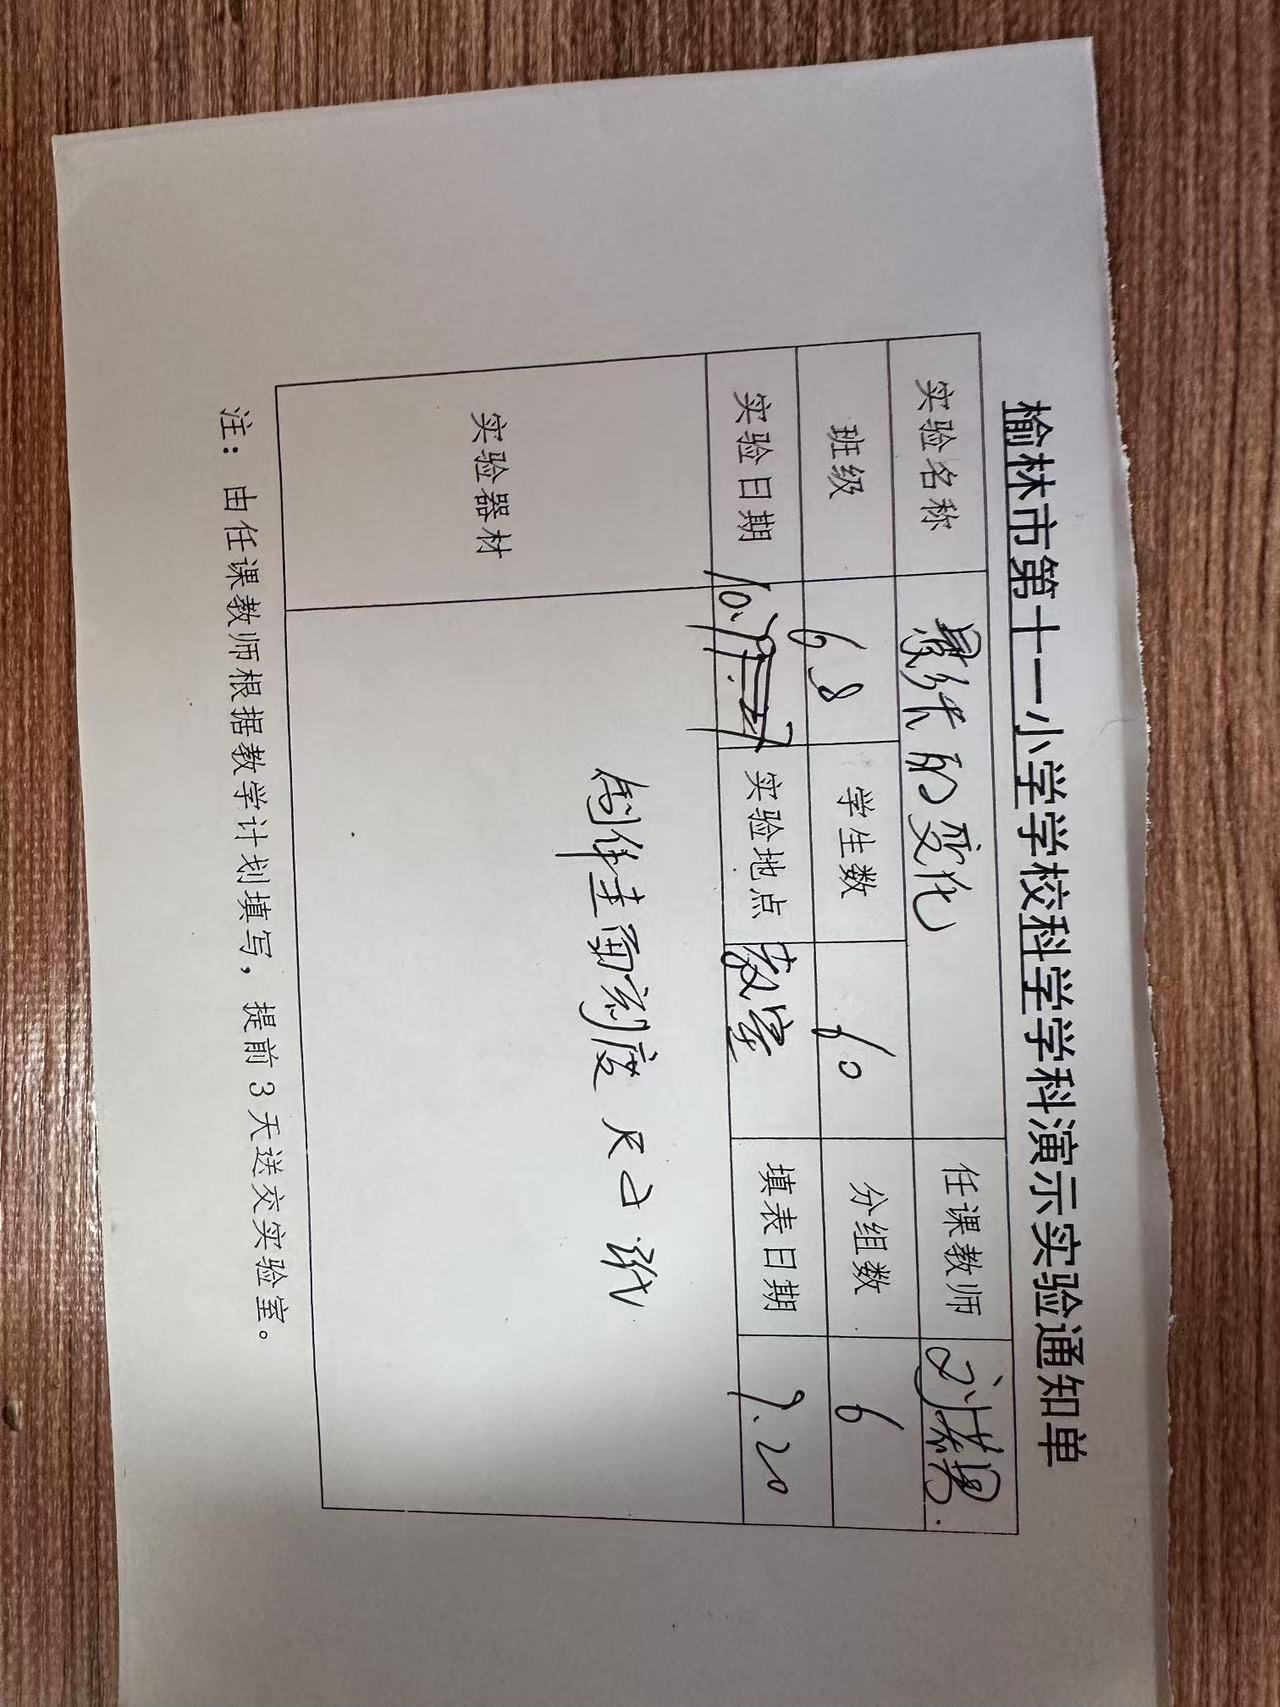 榆林市第十一小学学校科学学科演示实验通知单
实验名称 影长的变化 任课教师
班级 6.8 学生数 60 分组数 6
实验日期 实验地点 教室 填表日期 9.20
实验器材 刻度尺
注：由任课教师根据教学计划填写，提前3天送交实验室。